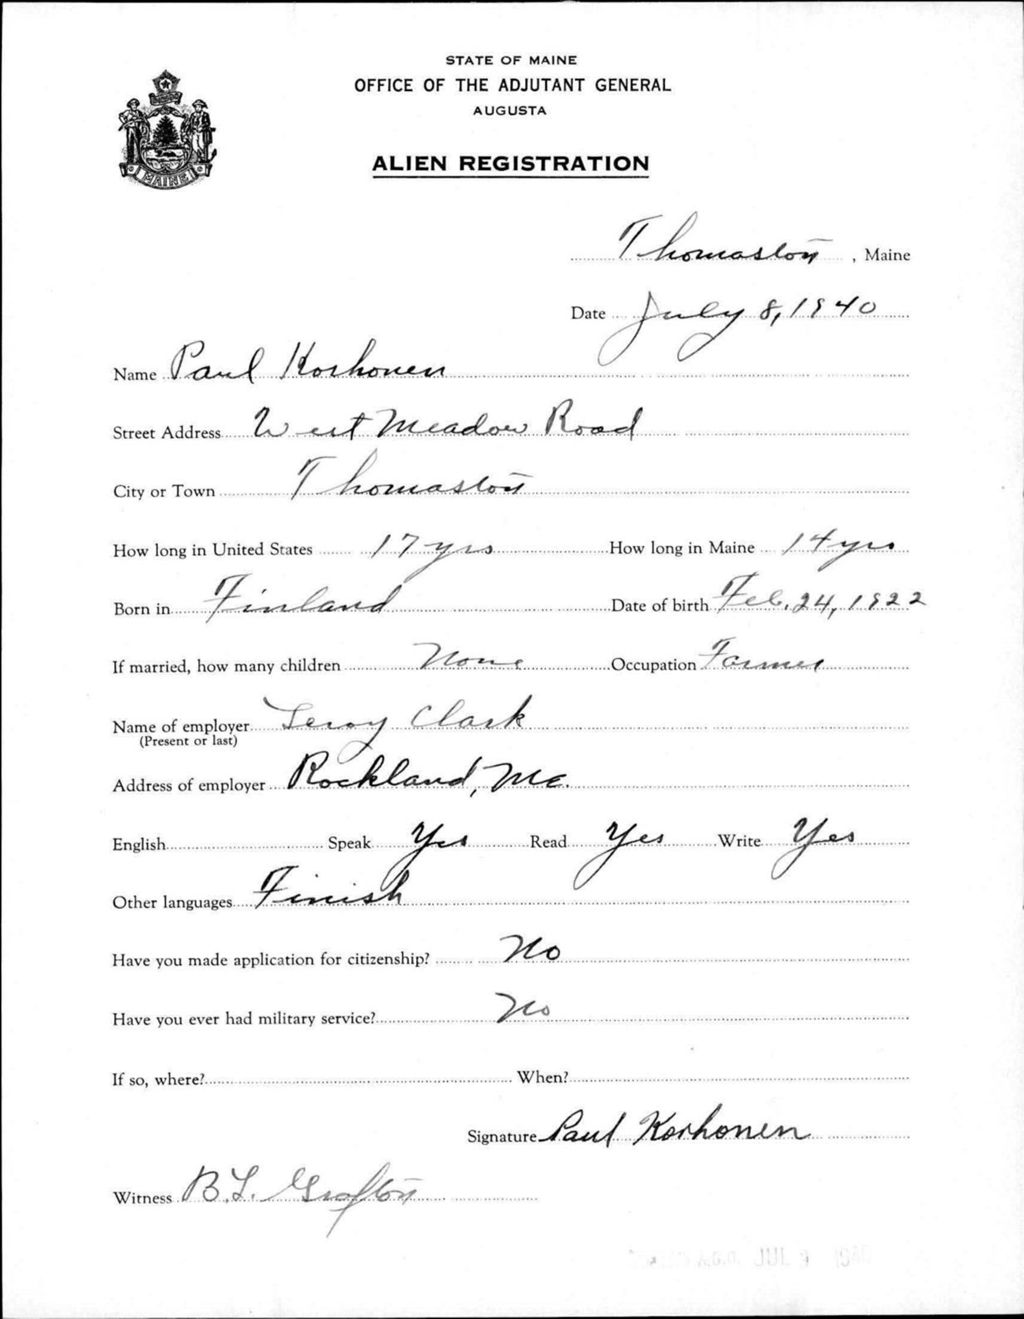 STATE OF MAINE
OFFICE OF THE ADJUTANT GENERAL
AUGUSTA
ALIEN REGISTRATION
MAINE
Thomaston, Maine
Date July 8, 1940
Name Paul Korhonen
Street Address West Meadow Road
City or Town Thomaston
How long in United States 17 yrs How long in Maine 14 yrs
Born in Finland Date of birth Feb. 24, 1922
If married, how many children None Occupation Farmer
Name of employer Leroy Clark
(Present or last)
Address of employer Rockland, Me.
English Speak Yes Read Yes Write Yes
Other languages Finish
Have you made application for citizenship? No
Have you ever had military service? No
If so, where? When?
Signature Paul Korhonen
Witness B.L. Grafton
A.G.O. JUL 9